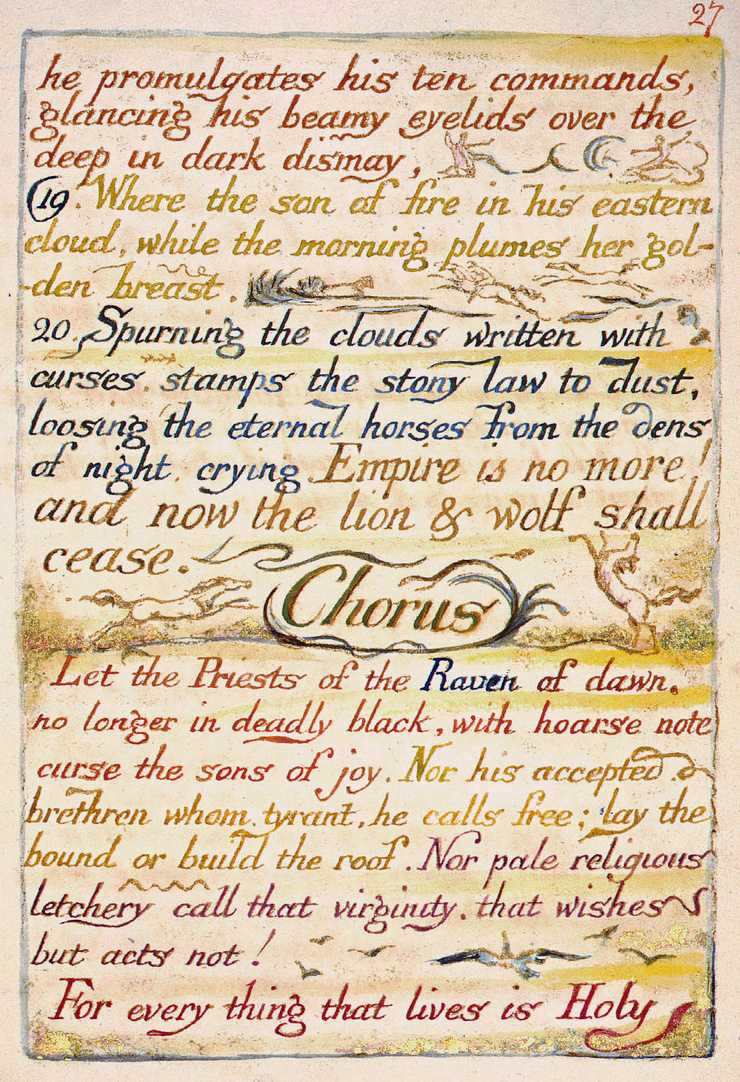 27
he promulgates his ten commands,
glancing his beamy eyelids over the
deep in dark dismay,
19. Where the son of fire in his eastern
cloud, while the morning plumes her gol-
-den breast.
20. Spurning the clouds written with
curses, stamps the stony law to dust,
loosing the eternal horses from the dens
of night, crying Empire is no more!
and now the lion & wolf shall
cease.
Chorus
Let the Priests of the Raven of dawn,
no longer in deadly black, with hoarse note
curse the sons of joy. Nor his accepted
brethren whom, tyrant, he calls free; lay the
bound or build the roof. Nor pale religious
letchery call that virginity, that wishes
but acts not!
For every thing that lives is Holy